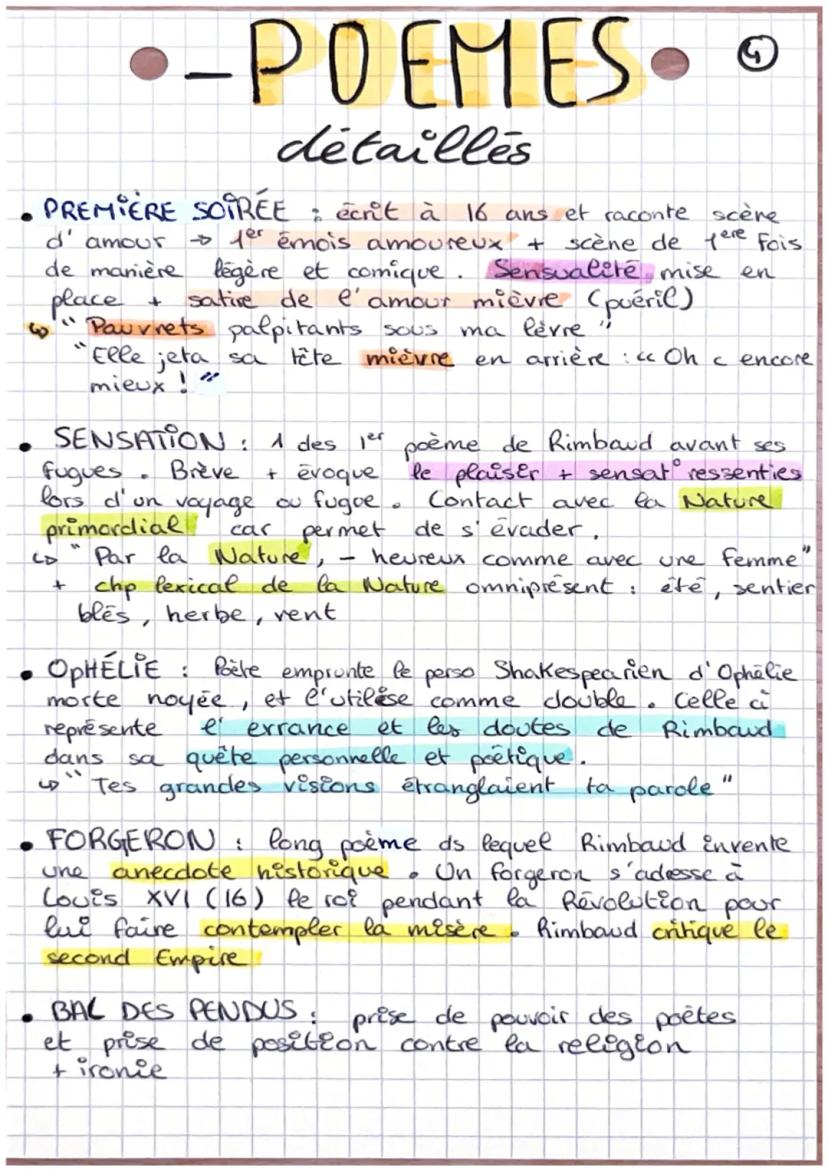 - POEMES
4
détaillés
• PREMIÈRE SOIRÉE : écrit à 16 ans et raconte scène
d'amour → 1er émois amoureux + scène de 1ere fois
de manière légère et comique. Sensualité mise en
place + satire de l'amour mièvre (puéril)
↳ " Pauvrets palpitants sous ma lèvre "
" Elle jeta sa tête mièvre en arrière : " Oh c encore
mieux ! "
• SENSATION : 1 des 1er poème de Rimbaud avant ses
fugues. Brève + évoque le plaisir + sensat° ressenties
lors d'un voyage ou fugue. Contact avec la Nature
primordial car permet de s'évader.
↳ " Par la Nature, - heureux comme avec une femme"
+ chp lexical de la Nature omniprésent : été, sentier
blés, herbe, vent
• OPHÉLIE : Poète emprunte le perso Shakespearien d'Ophélie
morte noyée, et l'utilise comme double. Celle ci
représente l'errance et les doutes de Rimbaud
dans sa quête personnelle et poétique.
↳ " Tes grandes visions étranglaient ta parole "
• FORGERON : long poème ds lequel Rimbaud invente
une anecdote historique. Un forgeron s'adresse à
Louis XVI (16) le roi pendant la Révolution pour
lui faire contempler la misère. Rimbaud critique le
second Empire
• BAL DES PENDUS : prise de pouvoir des poètes
et prise de position contre la religion
+ ironie